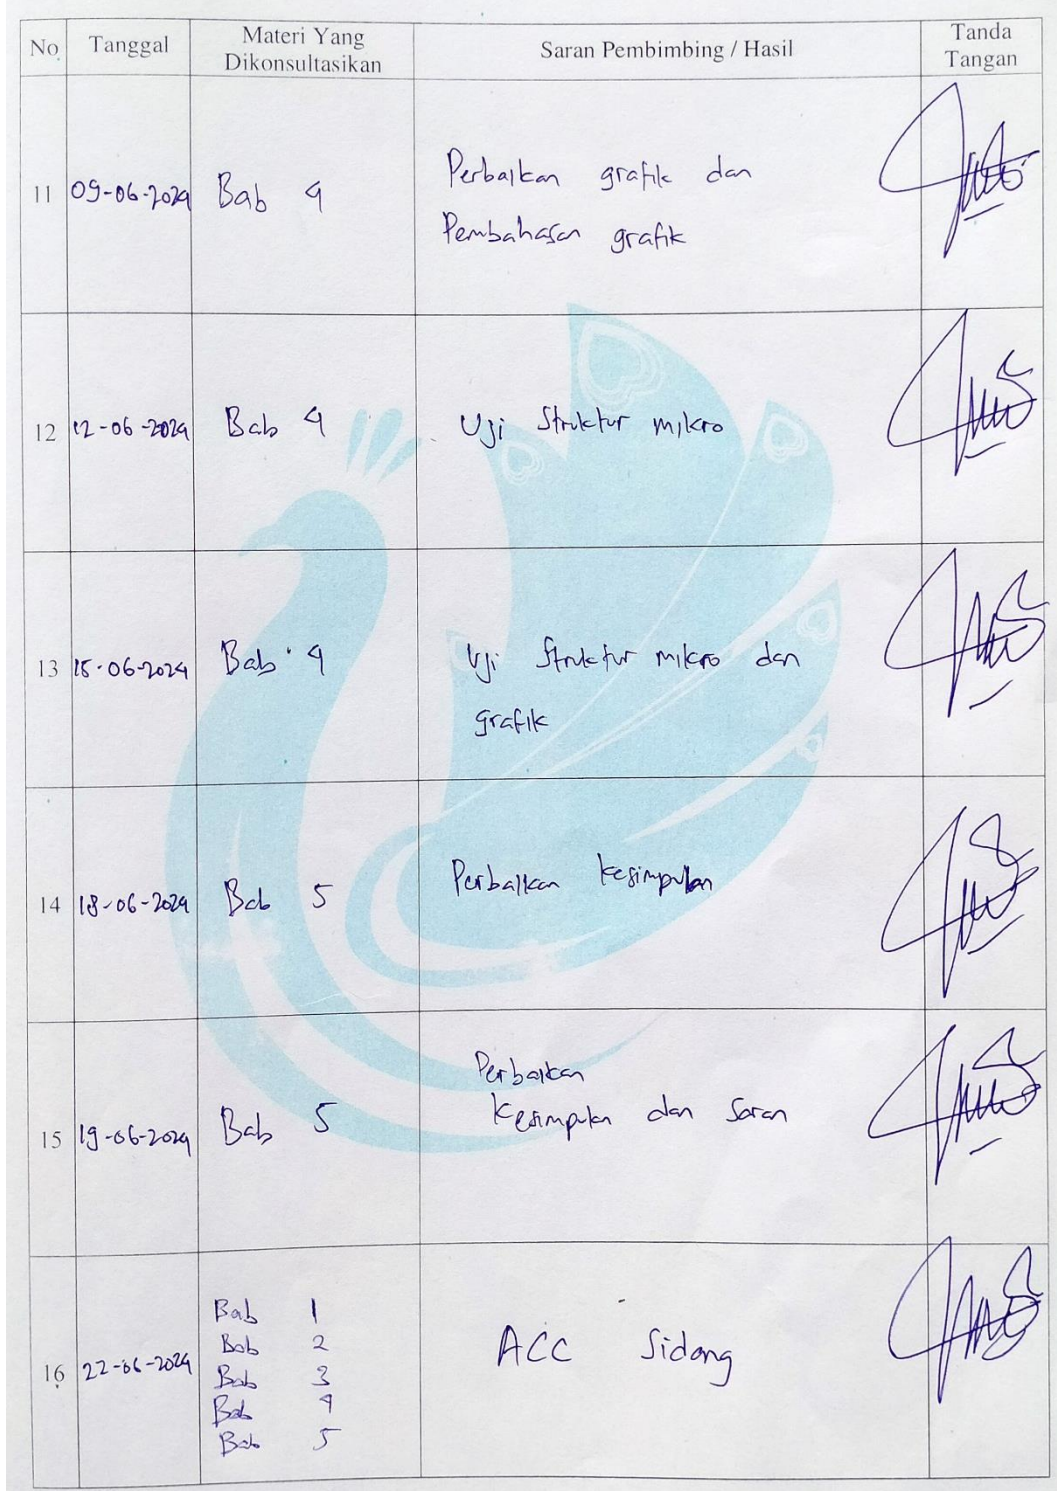 No Tanggal Materi Yang Dikonsultasikan Saran Pembimbing / Hasil Tanda Tangan
11 09-06-2024 Bab 4 Perbaikan grafik dan
Pembahasan grafik
12 12-06-2024 Bab 4 Uji Struktur mikro
13 15-06-2024 Bab 4 Uji Struktur mikro dan
grafik
14 18-06-2024 Bab 5 Perbaikan kesimpulan
15 19-06-2024 Bab 5 Perbaikan
kesimpulan dan Saran
16 22-06-2024 Bab 1
Bab 2
Bab 3
Bab 4
Bab 5
ACC Sidang